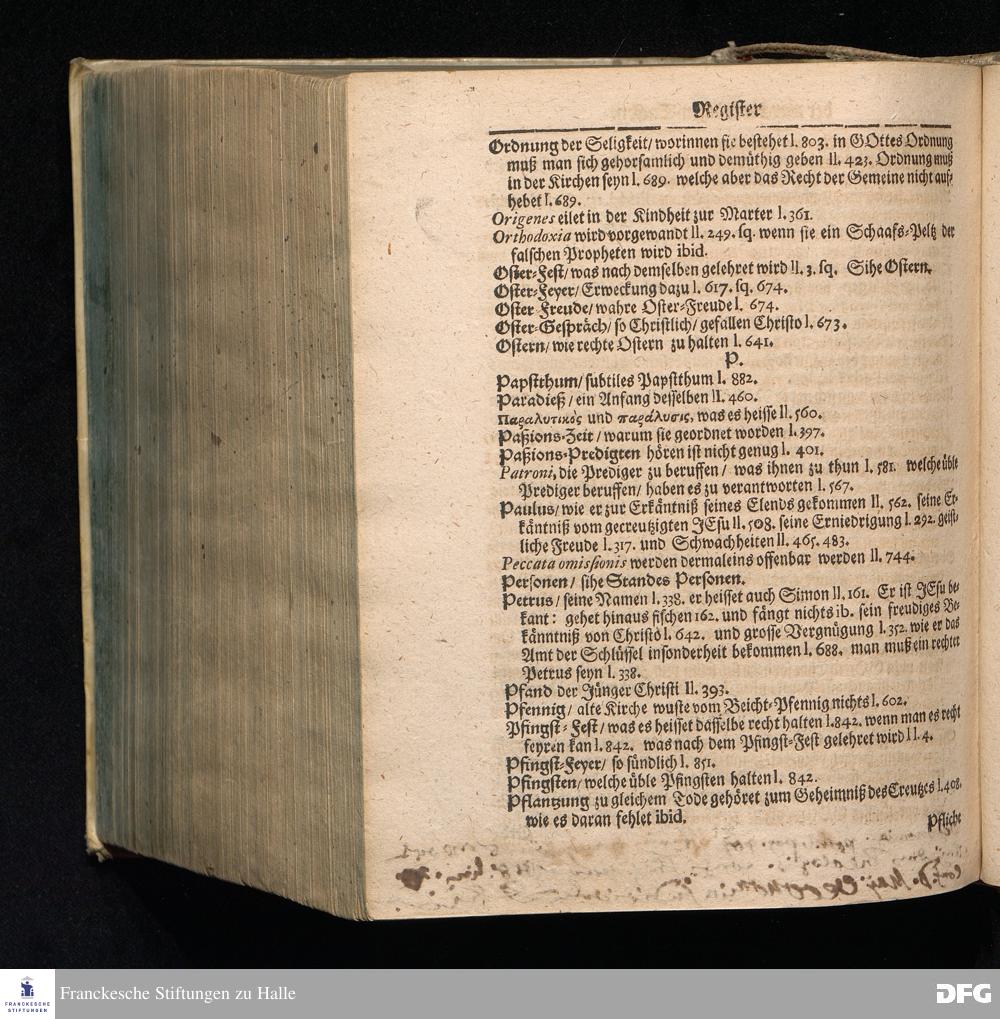 Register
Ordnung der Seligkeit/ worinnen sie bestehet I. 803. in GOttes Ordnung
muß man sich gehorsamlich und demüthig geben II. 423. Ordnung muß
in der Kirchen seyn I. 689. welche aber das Recht der Gemeine nicht auf-
hebet I. 689.
Origenes eilet in der Kindheit zur Marter I. 361.
Orthodoxia wird vorgewandt II. 249. sq. wenn sie ein Schaafs-Peltz der
falschen Propheten wird ibid.
Oster-Fest/ was nach demselben gelehret wird II. 3. sq. Sihe Ostern.
Oster-Feyer/ Erweckung dazu I. 617. sq. 674.
Oster Freude/ wahre Oster-Freude I. 674.
Oster-Gespräch/ so Christlich/ gefallen Christo I. 673.
Ostern/ wie rechte Ostern zu halten I. 641.
P.
Papstthum/ subtiles Papstthum I. 882.
Paradieß/ ein Anfang desselben II. 460.
Παραλυτικὸς und παράλυσις, was es heisse II. 560.
Paßions-Zeit/ warum sie geordnet worden I. 397.
Paßions-Predigten hören ist nicht genug I. 401.
Patroni, die Prediger zu beruffen/ was ihnen zu thun I. 581. welche üble
Prediger beruffen/ haben es zu verantworten I. 567.
Paulus/ wie er zur Erkäntniß seines Elends gekommen II. 562. seine Er-
käntniß vom gecreutzigten JEsu II. 508. seine Erniedrigung I. 292. geist-
liche Freude I. 317. und Schwachheiten II. 465. 483.
Peccata omissionis werden dermaleins offenbar werden II. 744.
Personen/ sihe Standes Personen.
Petrus/ seine Namen I. 338. er heisset auch Simon II. 161. Er ist JEsu be-
kant: gehet hinaus fischen 162. und fängt nichts ib. sein freudiges Be-
känntniß von Christo I. 642. und grosse Vergnügung I. 352. wie er das
Amt der Schlüssel insonderheit bekommen I. 688. man muß ein rechter
Petrus seyn I. 338.
Pfand der Jünger Christi II. 393.
Pfennig/ alte Kirche wuste vom Beicht-Pfennig nichts I. 602.
Pfingst-Fest/ was es heisset dasselbe recht halten I. 842. wenn man es recht
feyren kan I. 842. was nach dem Pfingst-Fest gelehret wird II. 4.
Pfingst-Feyer/ so sündlich I. 851.
Pfingsten/ welche üble Pfingsten halten I. 842.
Pflantzung zu gleichem Tode gehöret zum Geheimniß des Creutzes I. 408.
wie es daran fehlet ibid.
Pflicht
FRANCKESCHE
STIFTUNGEN
Franckesche Stiftungen zu Halle
DFG